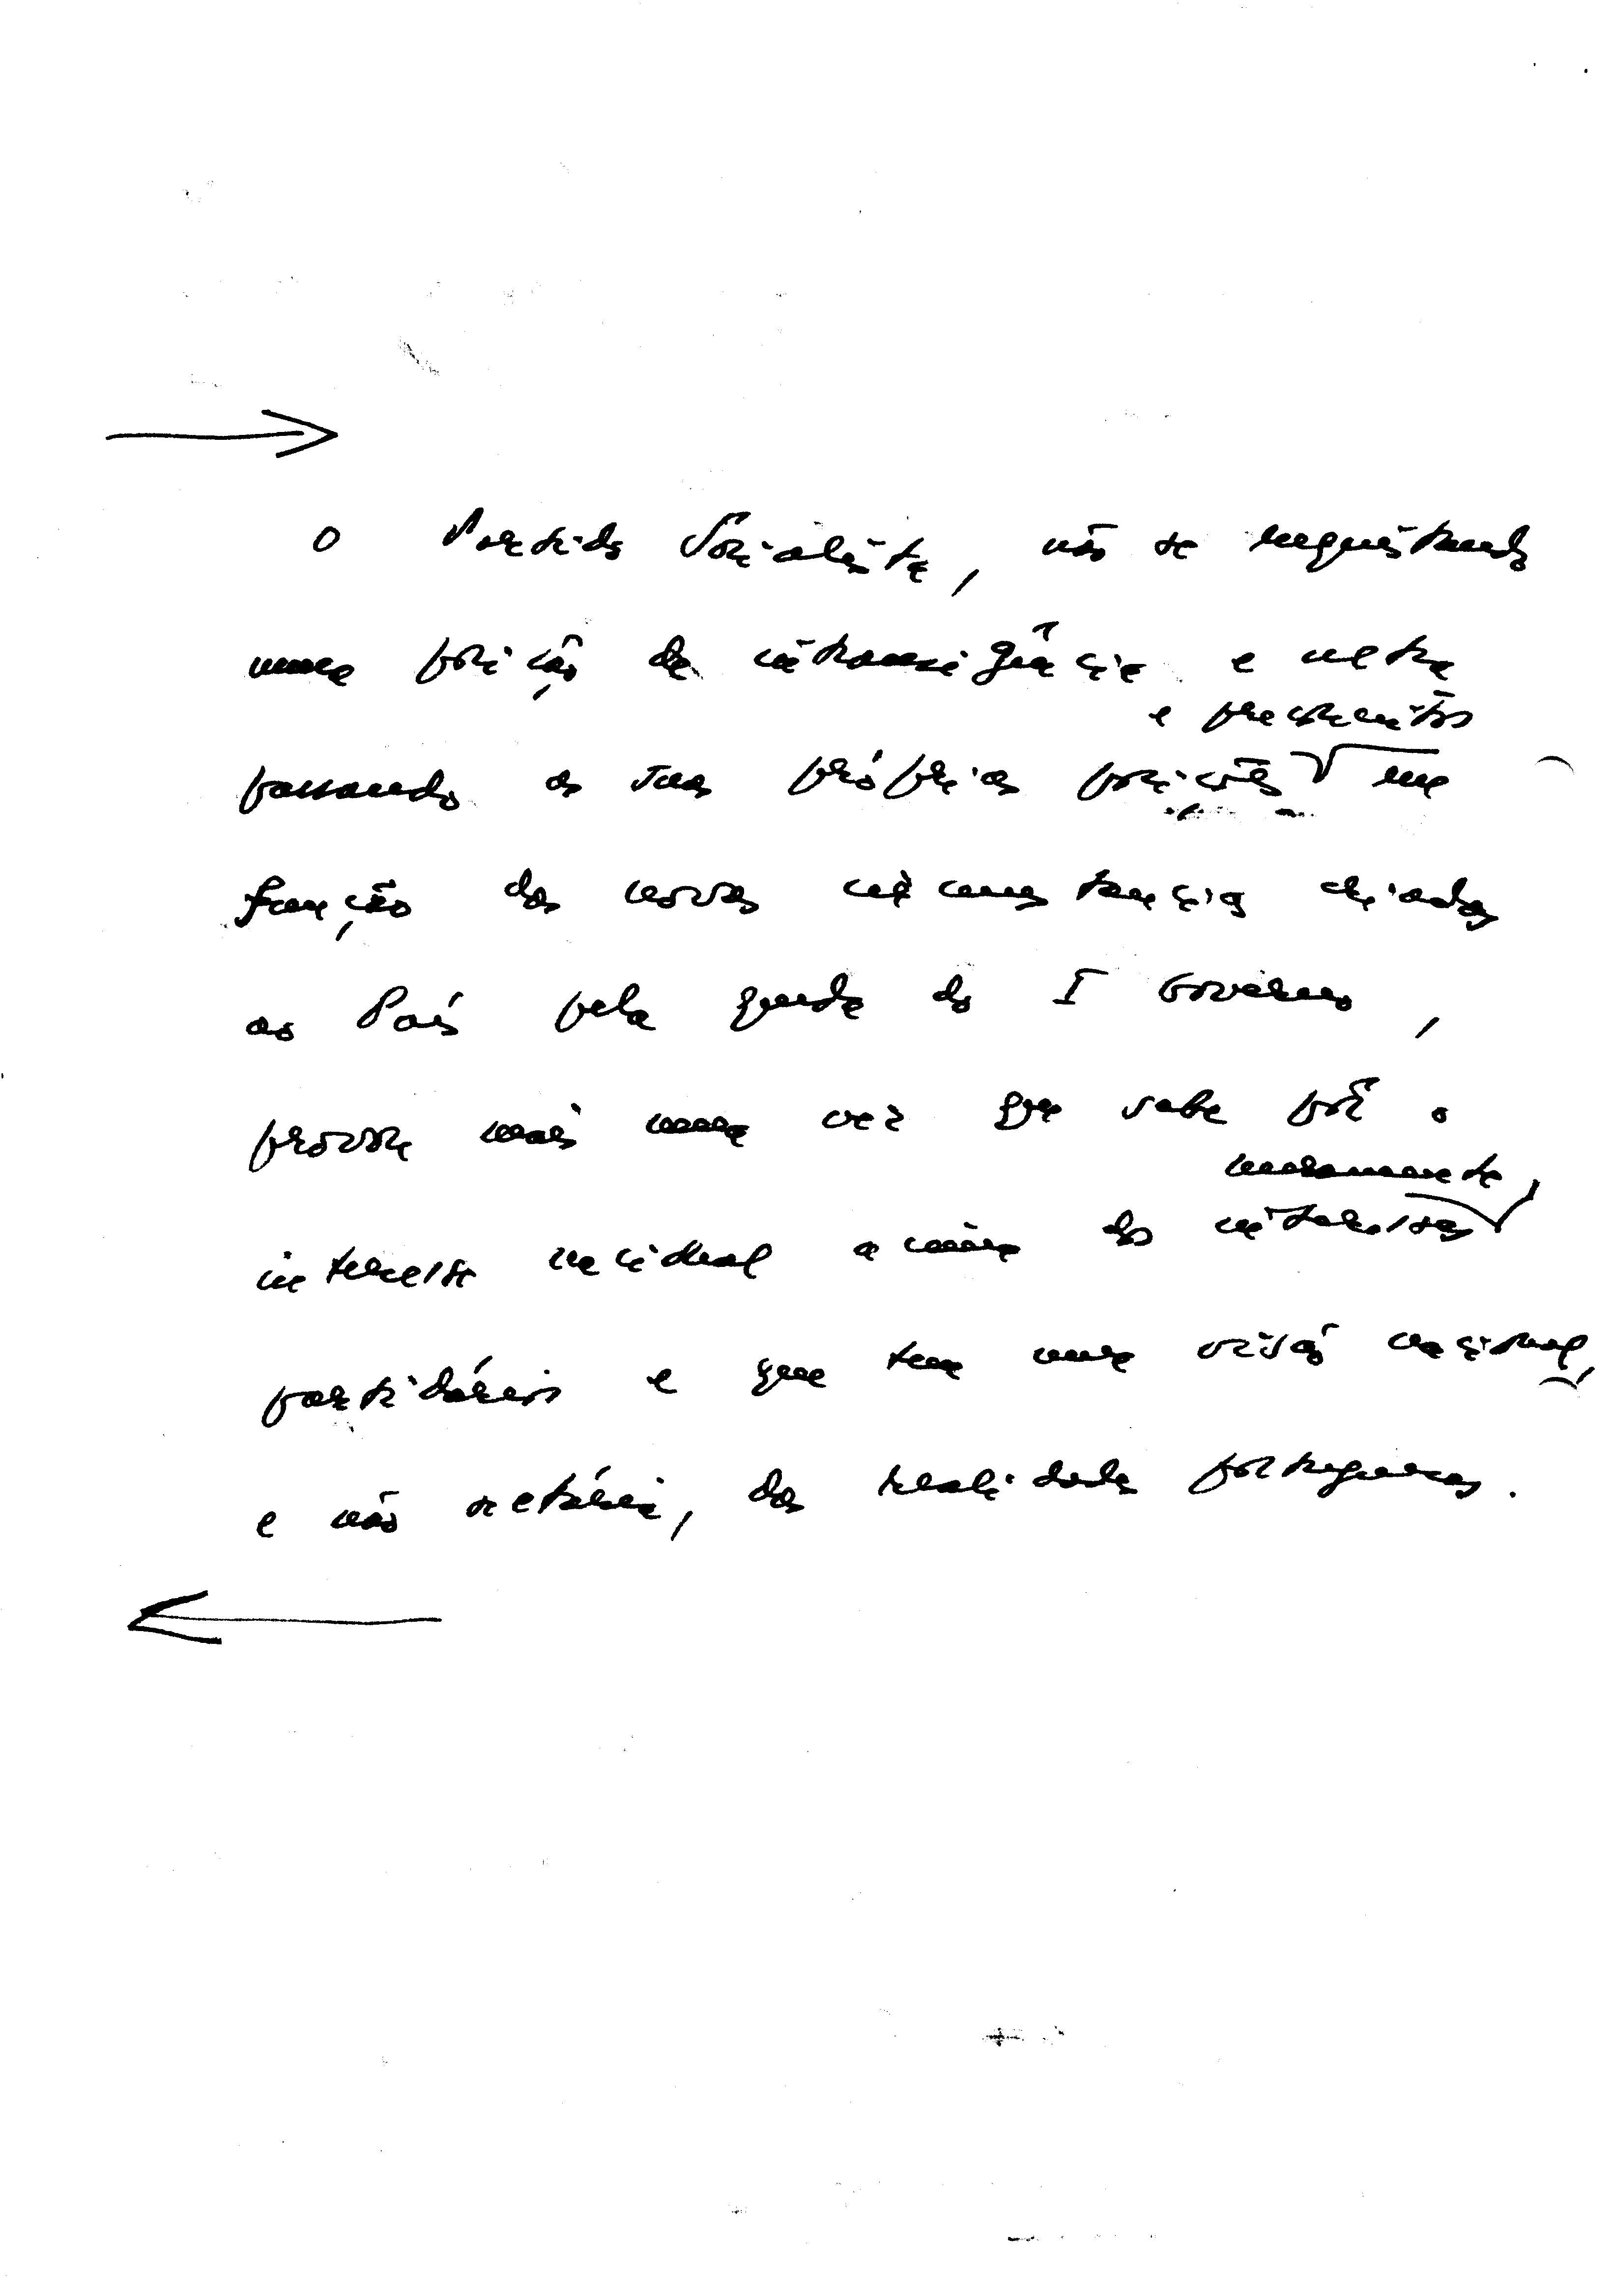 O Partido Socialista, não se enquistando
numa posição de intransigência e ultra
e preconceitos
passando as suas próprias posições em
função das novas circunstâncias criadas
ao País pela queda do I Governo,
provou mais uma vez que sabe pôr o
meramente
interesse nacional acima dos interesses
partidários e que tem uma visão nacional,
e não sectária, da realidade portuguesa.